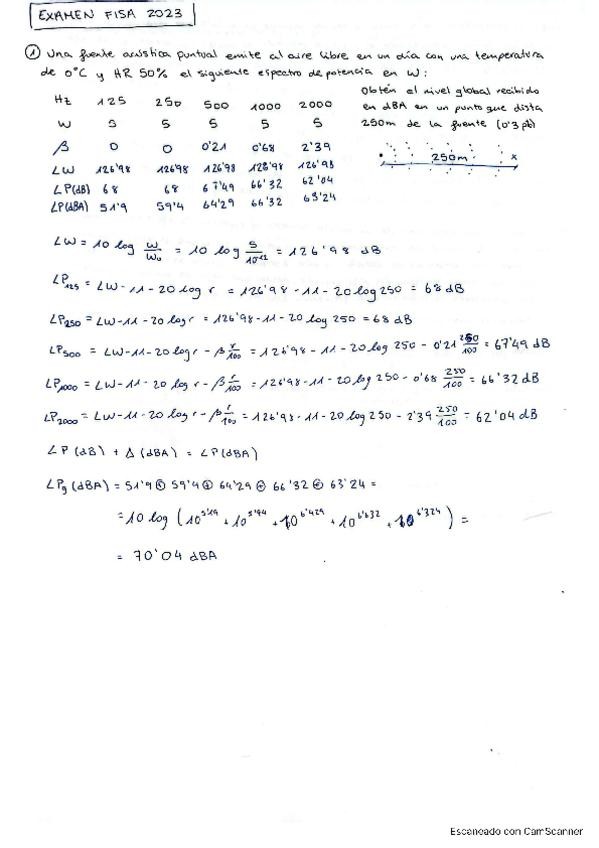 EXAMEN FISA 2023
① Una fuente acústica puntual emite al aire libre en un día con una temperatura
de 0°C y HR 50% el siguiente espectro de potencia en W:
Hz 125 250 500 1000 2000
W 5 5 5 5 5
β 0 0 0'21 0'68 2'39
LW 126'98 126'98 126'98 126'98 126'98
LP(dB) 68 68 67'49 66'32 62'04
LP(dBA) 51'9 59'4 64'29 66'32 63'24
Obtén el nivel global recibido
en dBA en un punto que dista
250m de la fuente (0'3 pt)
250m x
LW = 10 log W/W₀ = 10 log 5/10⁻¹² = 126'98 dB
LP₁₂₅ = LW-11-20 log r = 126'98-11-20 log 250 = 68 dB
LP₂₅₀ = LW-11-20 log r = 126'98-11-20 log 250 = 68 dB
LP₅₀₀ = LW-11-20 log r - β r/100 = 126'98-11-20 log 250 - 0'21 250/100 = 67'49 dB
LP₁₀₀₀ = LW-11-20 log r - β r/100 = 126'98-11-20 log 250 - 0'68 250/100 = 66'32 dB
LP₂₀₀₀ = LW-11-20 log r - β r/100 = 126'98-11-20 log 250 - 2'39 250/100 = 62'04 dB
LP (dB) + Δ (dBA) = LP(dBA)
LPg (dBA) = 51'9 ⊕ 59'4 ⊕ 64'29 ⊕ 66'32 ⊕ 63'24 =
= 10 log (10^5'19 + 10^5'94 + 10^6'429 + 10^6'632 + 10^6'324) =
= 70'04 dBA
Escaneado con CamScanner